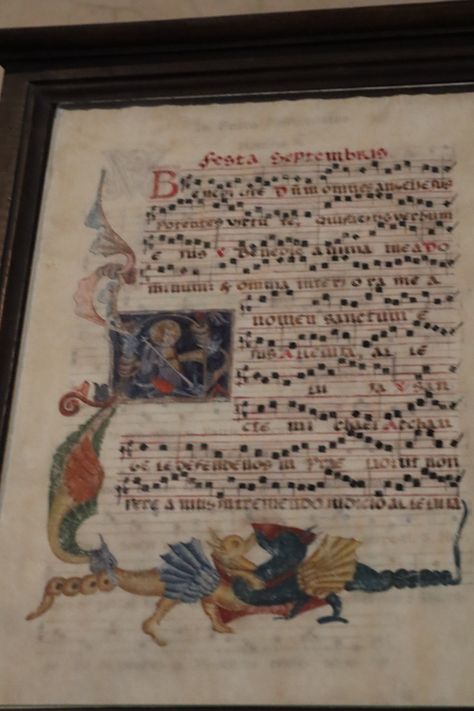 Festa Septembris
Benedicite Dnm omnes angeli eius
potentes virtute, qui facitis verbum
e ius V Benedic anima mea Do
minum & omnia interi ora me a
nomen sanctum e
ius Alleluia, al le
lu ia V San
cte mi chael Archan
ge le defende nos in ut non
pere a mus in tremendo iudicio alleluia